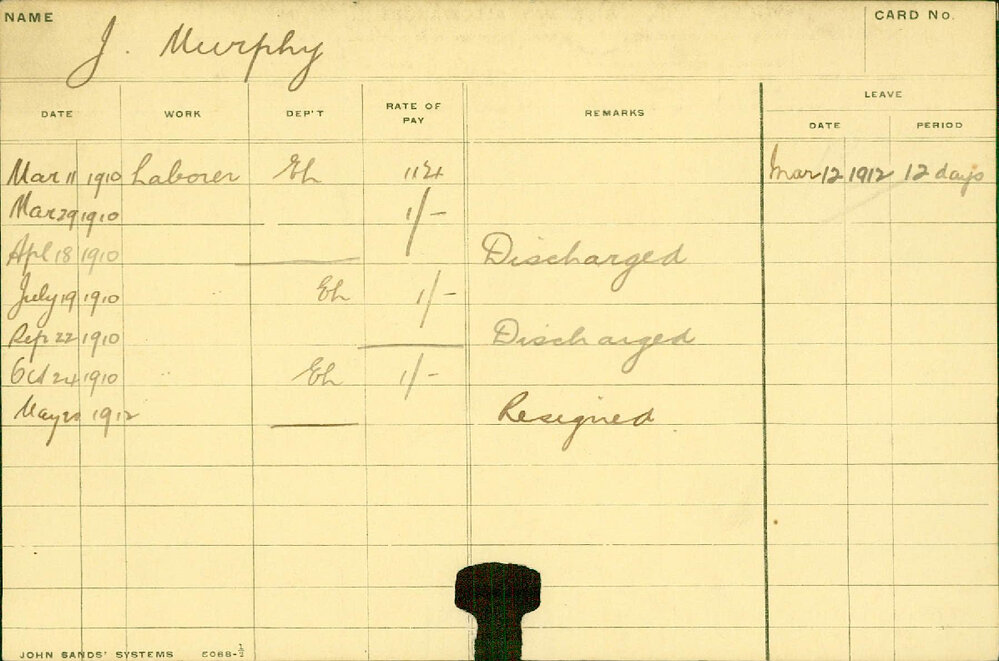 NAME J. Murphy CARD No.
LEAVE
DATE WORK DEP'T RATE OF PAY REMARKS DATE PERIOD
Mar 11 1910 Laborer Eh Mar 12 1912 12 days
Mar 29 1910 1/-
Apl 18 1910 Discharged
July 19 1910 Eh 1/-
Sep 22 1910 Discharged
Oct 24 1910 Eh 1/-
May 1912 Resigned
JOHN SANDS' SYSTEMS 5068-½